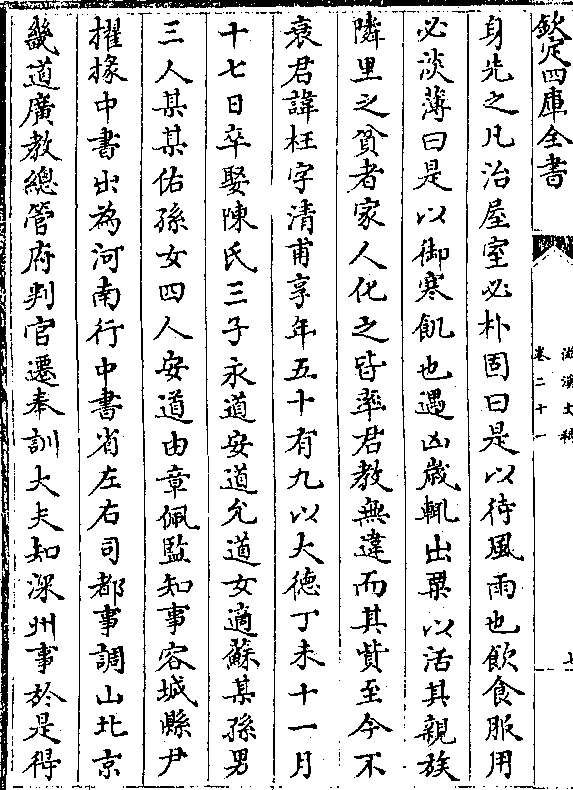 欽定四庫全書
滋溪文稿
卷二十一
七
身先之凡治屋室必朴固曰是以待風雨也飲食服用
必淡薄曰是以御寒飢也遇凶歳輒出粟以活其親族
隣里之貧者家人化之皆率君教無違而其貲至今不
衰君諱枉字清甫享年五十有九以大德丁未十一月
十七日卒娶陳氏三子永道安道允道女適蘇某孫男
三人某某佑孫女四人安道由章佩監知事容城縣尹
擢掾中書出為河南行中書省左右司都事調山北京
畿道廣教總管府判官遷奉訓大夫知深州事於是得